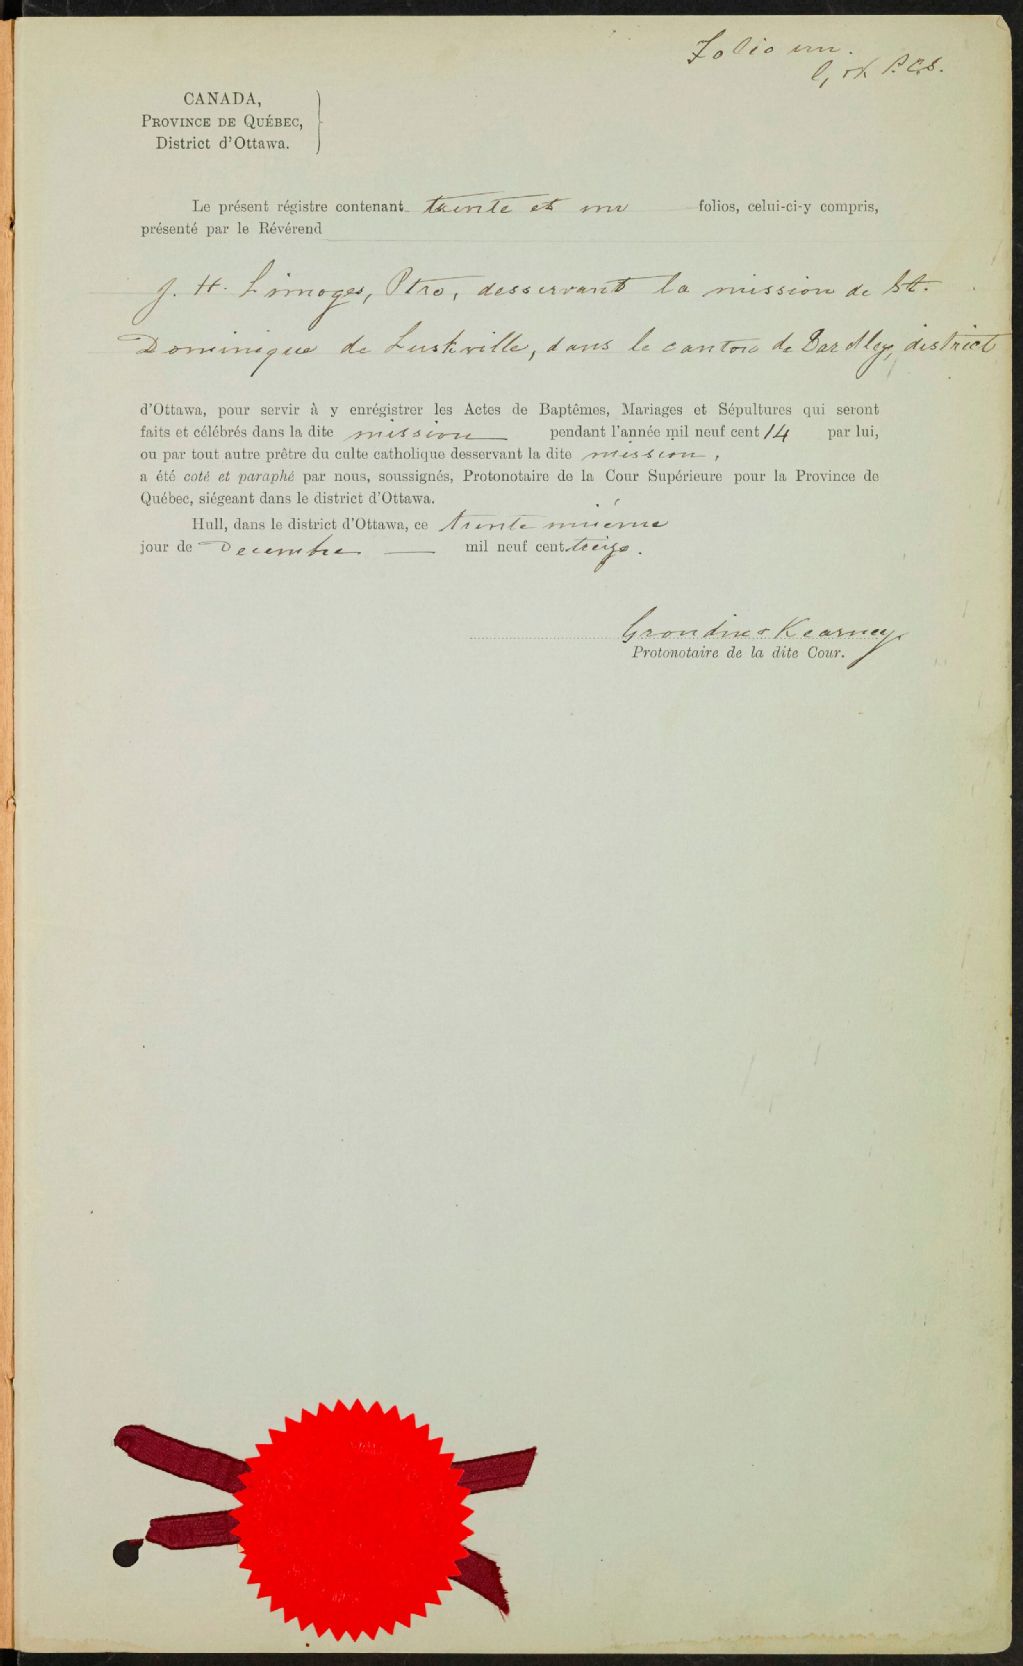 Folio un.
G, & K P.C.S.
CANADA,
PROVINCE DE QUÉBEC,
District d'Ottawa.
Le présent régistre contenant trente et un folios, celui-ci-y compris,
présenté par le Révérend
J. H. Limoges, Ptre, desservant la mission de St.
Dominique de Luskville, dans le canton de Eardley, district
d'Ottawa, pour servir à y enrégistrer les Actes de Baptêmes, Mariages et Sépultures qui seront
faits et célébrés dans la dite mission pendant l'année mil neuf cent 14 par lui,
ou par tout autre prêtre du culte catholique desservant la dite mission,
a été coté et paraphé par nous, soussignés, Protonotaire de la Cour Supérieure pour la Province de
Québec, siégeant dans le district d'Ottawa.
Hull, dans le district d'Ottawa, ce trente unième
jour de Decembre mil neuf cent treize.
Grondin & Kearney
Protonotaire de la dite Cour.